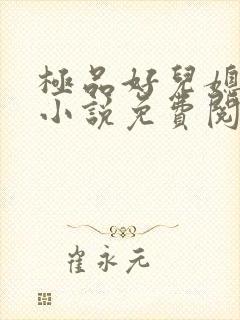 極品好兒媳
小說免費閱
崔永元